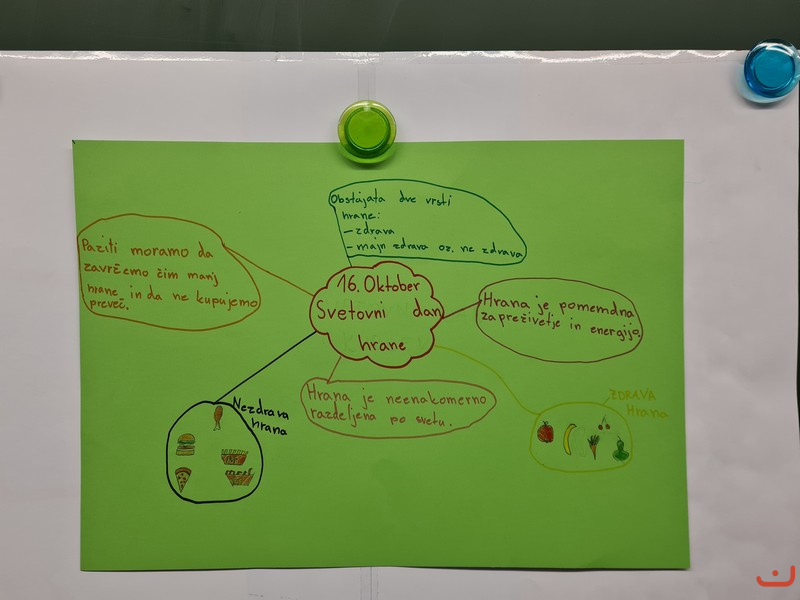 Obstajata dve vrsti
hrane:
- zdrava
- majn zdrava oz. ne zdrava
Paziti moramo da
zavržemo čim manj
hrane in da ne kupujemo
preveč.
16. Oktober
Svetovni dan
hrane
Hrana je pomemdna
za preživetje in energijo.
Hrana je neenakomerno
razdeljena po svetu.
Nezdrava
hrana
ZDRAVA
Hrana